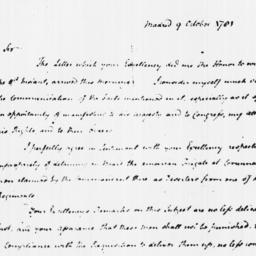 Madrid 9 October 1781
Sir
The Letter which your Excellency did me the Honor to wr
the 8th Instant, arrived this Morning. I consider myself much o
the Communication of the Facts mentioned in it, especially as it af
an opportunity of manifesting to his majesty and to Congress, my att
his Rights and to their Orders.
I perfectly agree in Sentiment with your Excellency respect
impropriety of detaining on board the american frigate at Corunna
men claimed by the Government there as Deserters from one of
Regiments.
Your Excellency's Remarks on this Subject are no less delica
Just, and your assurance that these men shall not be punished,
Compliance with the Requisition to deliver them up, no less con